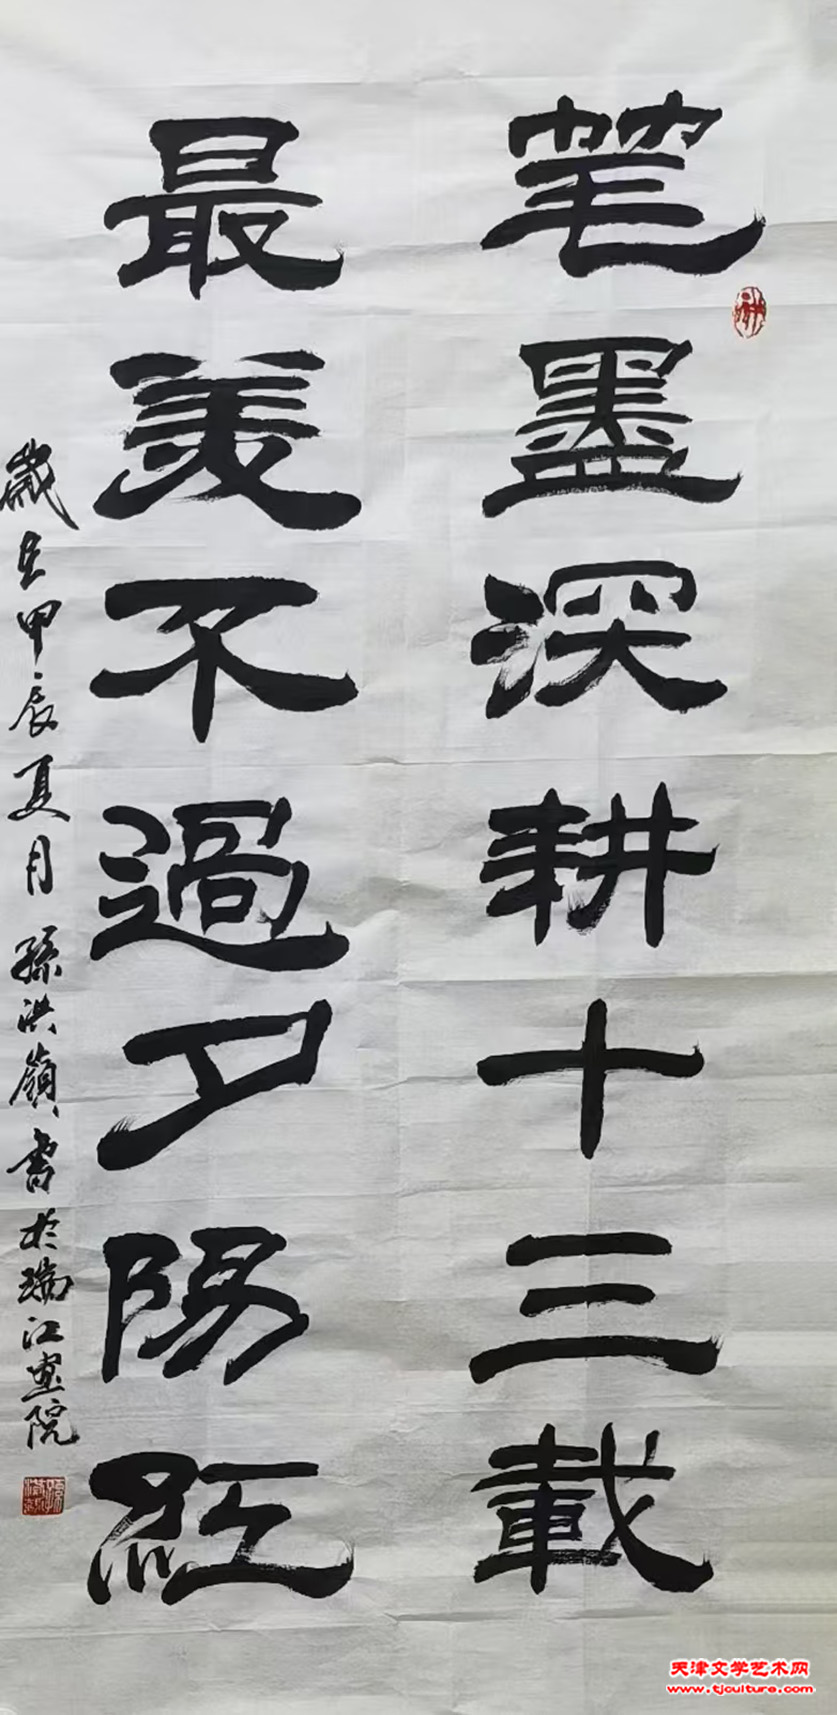 笔墨深耕十三載
最美不過夕陽紅
歲在甲辰夏月孫洪嶺書於瑞江畫院
天津文学艺术网
www.tjculture.com